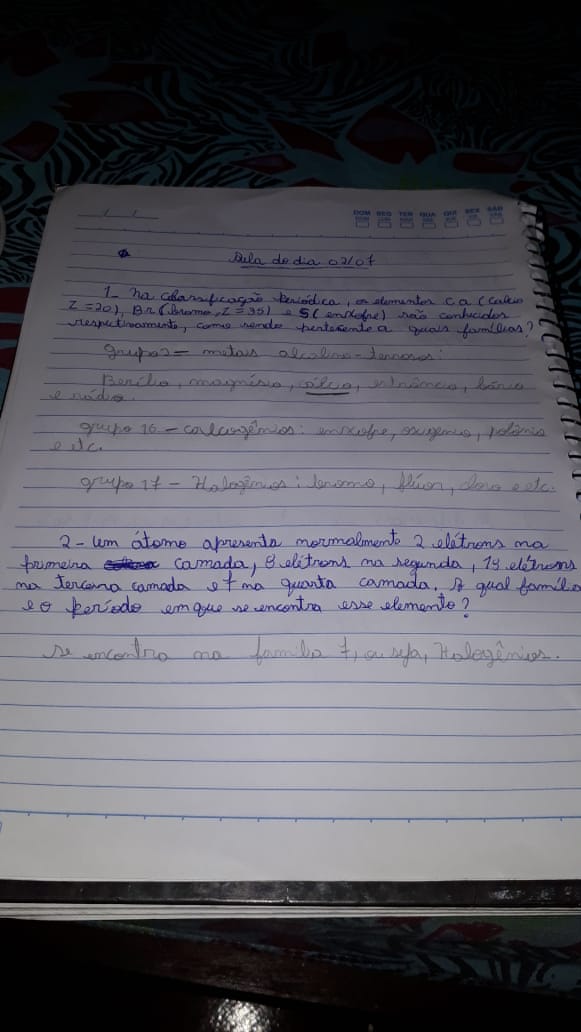 DOM SEG TER QUA QUI SEX SÁB
Aula do dia 02/07
1- Na classificação Periódica, os elementos Ca (Cálcio
Z=20), Br (bromo, Z=35) e S (enxofre) são conhecidos
respectivamente, como sendo pertencente a quais famílias?
Grupo 2 - metais alcalino-terrosos:
Berílio, magnésio, cálcio, estrôncio, bário
e rádio.
grupo 16 - calcogênios: enxofre, oxigênio, polônio
e etc.
grupo 17 - Halogênios: bromo, flúor, cloro e etc.
2- Um átomo apresenta normalmente 2 elétrons na
primeira camada, 8 elétrons na segunda, 18 elétrons
na terceira camada e 7 na quarta camada. A qual família
e o Período em que se encontra esse elemento?
se encontra na família 7, ou seja, Halogênios.